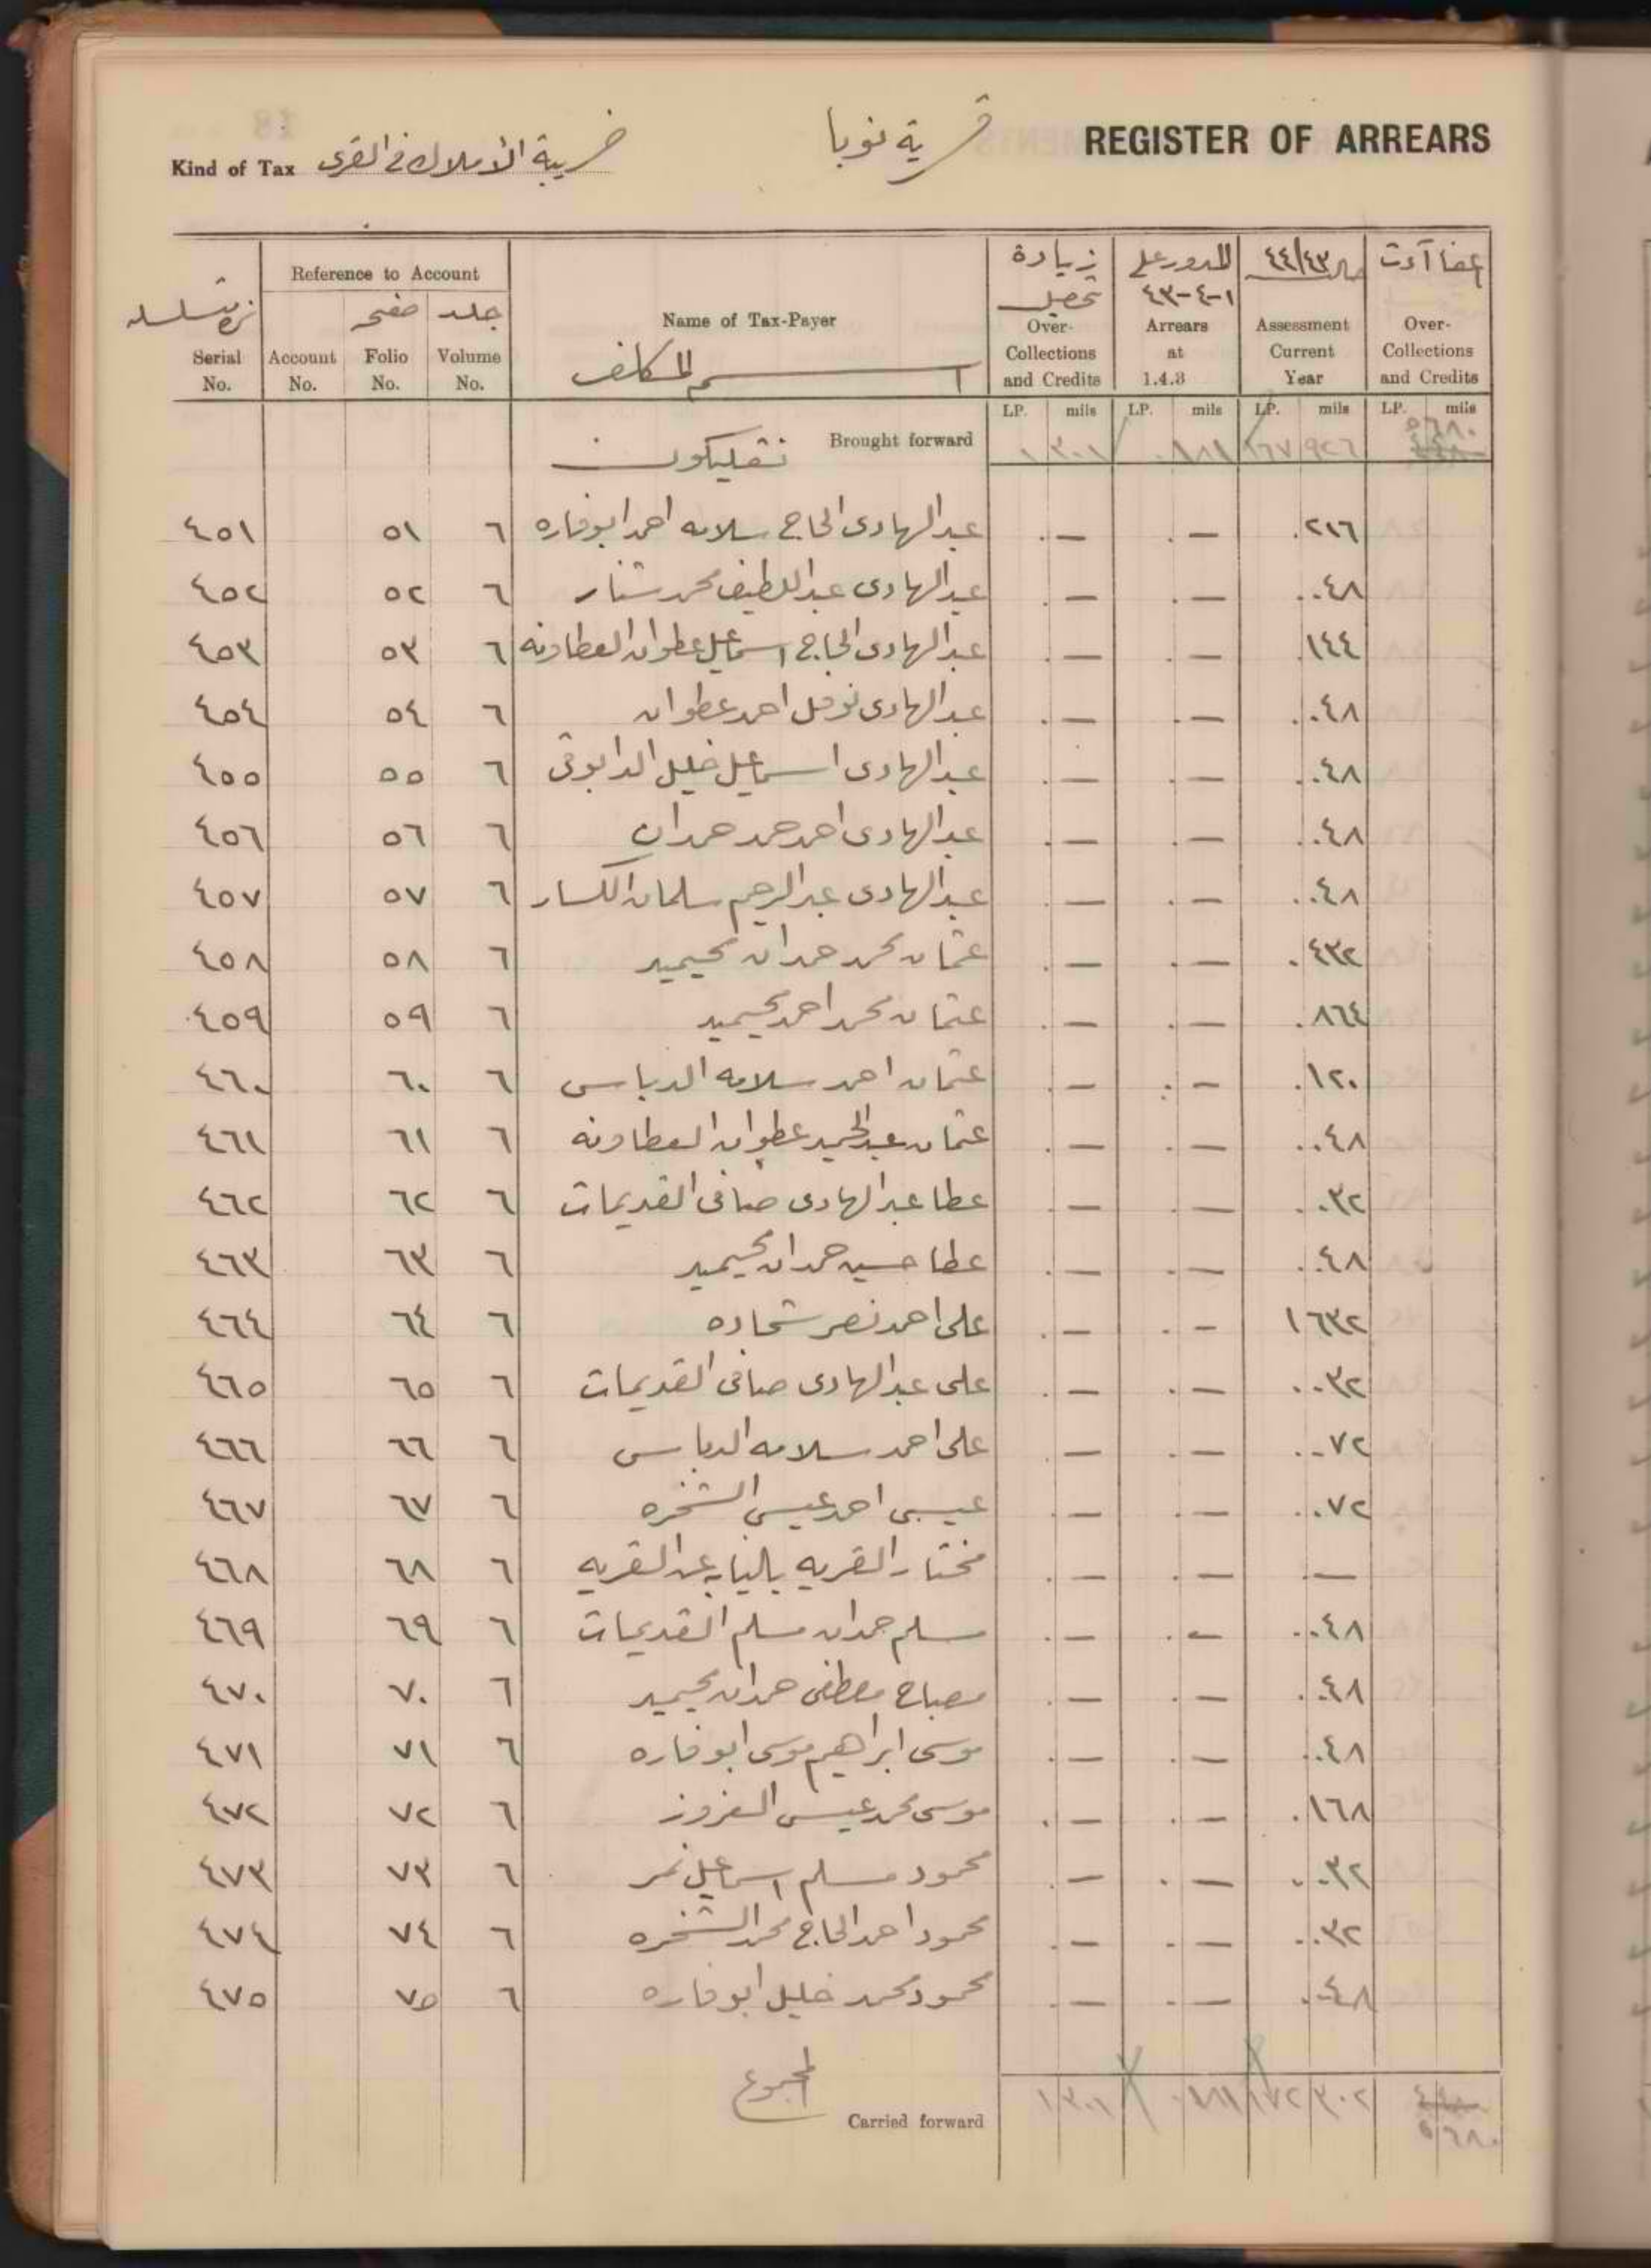 REGISTER OF ARREARS
قرية نوبا
Kind of Tax ضريبة الأملاك في القرى
Serial No.
Reference to Account
Account No.
صفحه Folio No.
جلد Volume No.
Name of Tax-Payer
اسم المكلف
زيادة تحصيل Over-Collections and Credits
المدور على ١-٤-٤٣ Arrears at 1.4.3
٤٤/٤٣ Assessment Current Year
Over-Collections and Credits
LP. mils LP. mils LP. mils LP. mils
Brought forward ١ ٣٠١ ٠ ٨١١ ١٦٧ ٩٢٦ ٥ ٦٨٠
٤٥١ ٥١ ٦ عبد الهادى الحاج سلامه احمد ابوفاره .— .— .٢١٦
٤٥٢ ٥٢ ٦ عبد الهادى عبد اللطيف محمد شنار .— .— ..٤٨
٤٥٣ ٥٣ ٦ عبد الهادى الحاج اسماعيل عطوان العطاونه .— .— .١٤٤
٤٥٤ ٥٤ ٦ عبد الهادى نوفل احمد عطوان .— .— ..٤٨
٤٥٥ ٥٥ ٦ عبد الهادى اسماعيل خليل الدابوقى .— .— ..٤٨
٤٥٦ ٥٦ ٦ عبد الهادى احمد حمد حمدان .— .— ..٤٨
٤٥٧ ٥٧ ٦ عبد الهادى عبد الرحيم سلمان الكسار .— .— ..٤٨
٤٥٨ ٥٨ ٦ عثمان محمد حمدان محيميد .— .— .٤٣٢
٤٥٩ ٥٩ ٦ عثمان محمد احمد محيميد .— .— .٨٦٤
٤٦٠ ٦٠ ٦ عثمان احمد سلامه الدباس .— .— .١٢٠
٤٦١ ٦١ ٦ عثمان عبد الحميد عطوان العطاونه .— .— ..٤٨
٤٦٢ ٦٢ ٦ عطا عبد الهادى صافى القديمات .— .— ..٣٢
٤٦٣ ٦٣ ٦ عطا حسين حمدان محيميد .— .— ..٤٨
٤٦٤ ٦٤ ٦ على احمد نصر شحاده .— .— ١ ٦٣٢
٤٦٥ ٦٥ ٦ على عبد الهادى صافى القديمات .— .— ..٣٢
٤٦٦ ٦٦ ٦ على احمد سلامه الدباس .— .— ..٧٢
٤٦٧ ٦٧ ٦ عيسى احمد عيسى الشخره .— .— ..٧٢
٤٦٨ ٦٨ ٦ مختار القريه بالنيابه عن القريه .— .— .—
٤٦٩ ٦٩ ٦ مسلم حمدان مسلم القديمات .— .— ..٤٨
٤٧٠ ٧٠ ٦ مصباح مصطفى حمدان محيميد .— .— ..٤٨
٤٧١ ٧١ ٦ موسى ابراهيم موسى ابوفاره .— .— ..٤٨
٤٧٢ ٧٢ ٦ موسى محمد عيسى .— .— .١٦٨
٤٧٣ ٧٣ ٦ محمود مسلم اسماعيل نمر .— .— ..٣٢
٤٧٤ ٧٤ ٦ محمود احمد الحاج محمد الشخره .— .— ..٣٢
٤٧٥ ٧٥ ٦ محمود محمد خليل ابوفاره .— .— ..٤٨
المجموع
Carried forward ١ ٣٠١ ٠ ٨١١ ١٧٢ ٣٠٢ ٥ ٦٨٠